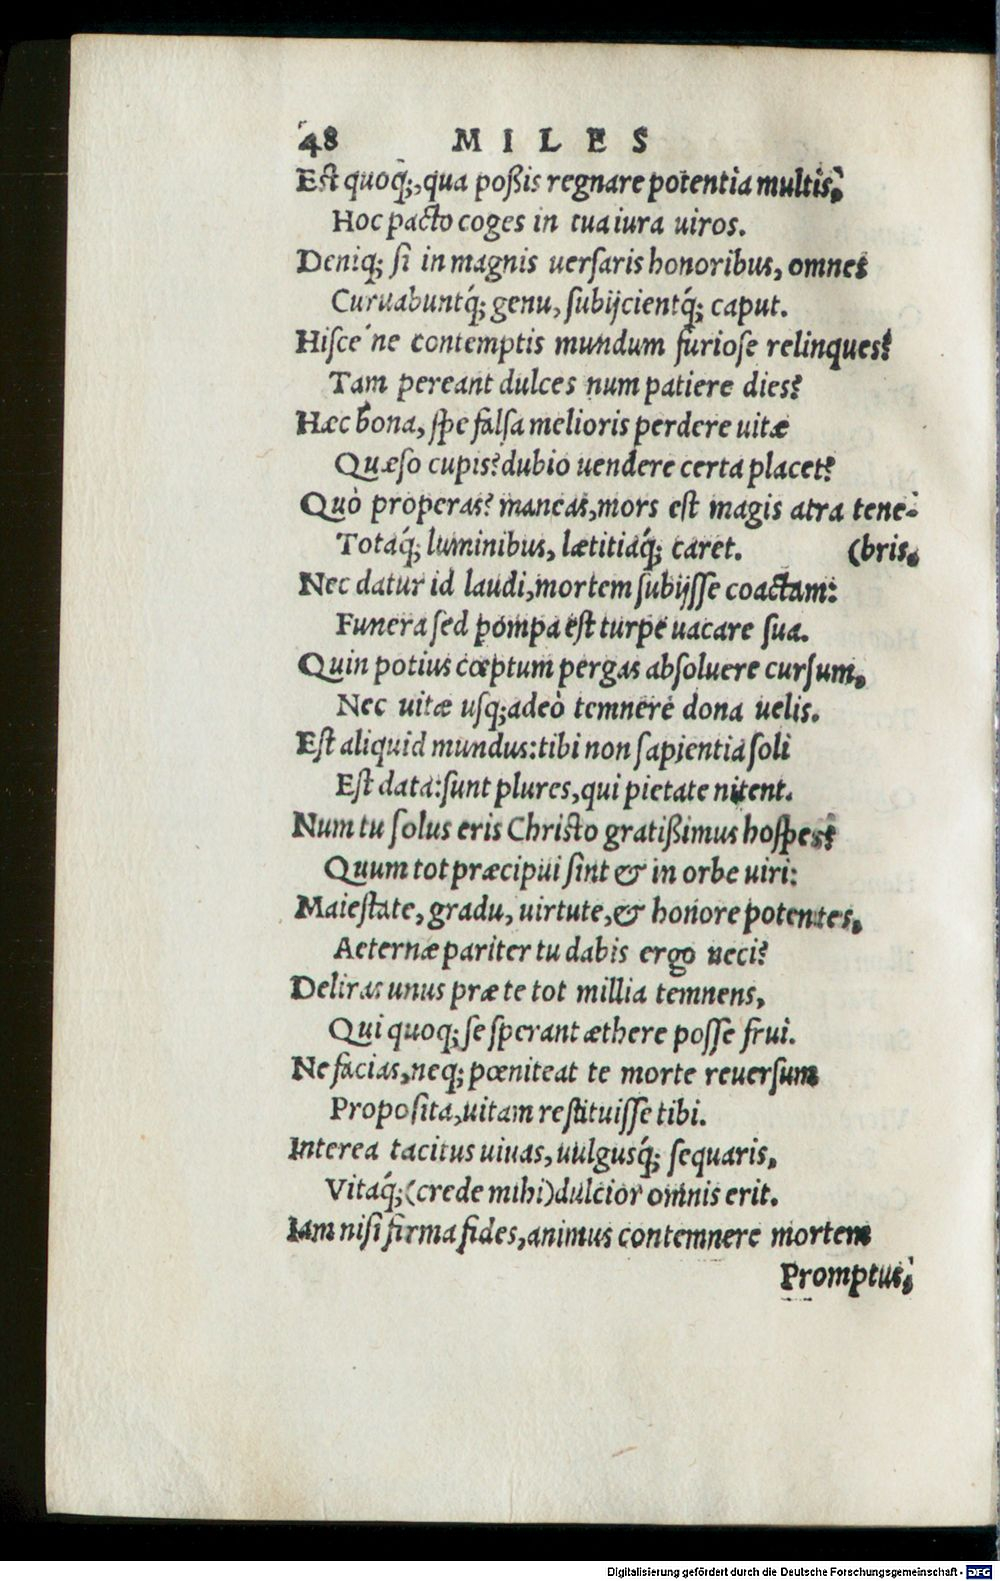 48 MILES
Est quoq;, qua poßis regnare potentia multis,
Hoc pacto coges in tua iura uiros.
Deniq; si in magnis uersaris honoribus, omnes
Curuabuntq́; genu, subijcientq́; caput.
Hisce ne contemptis mundum furiose relinques?
Tam pereant dulces num patiere dies?
Hæc bona, spe falsa melioris perdere uitæ
Quæso cupis? dubio uendere certa placet?
Quò properas? maneas, mors est magis atra tene-
Totaq́; luminibus, lætitiaq́; caret. (bris,
Nec datur id laudi, mortem subijsse coactam:
Funera sed pompa est turpe uacare sua.
Quin potius cœptum pergas absoluere cursum,
Nec uitæ usq; adeò temnere dona uelis.
Est aliquid mundus: tibi non sapientia soli
Est data: sunt plures, qui pietate nitent.
Num tu solus eris Christo gratißimus hospes?
Quum tot præcipui sint & in orbe uiri:
Maiestate, gradu, uirtute, & honore potentes,
Aeternæ pariter tu dabis ergo neci?
Deliras unus præ te tot millia temnens,
Qui quoq; se sperant æthere posse frui.
Ne facias, neq; pœniteat te morte reuersum
Proposita, uitam restituisse tibi.
Interea tacitus uiuas, uulgusq́; sequaris,
Vitaq́; (crede mihi) dulcior omnis erit.
Iam nisi firma fides, animus contemnere mortem
Promptus,
Digitalisierung gefördert durch die Deutsche Forschungsgemeinschaft - DFG